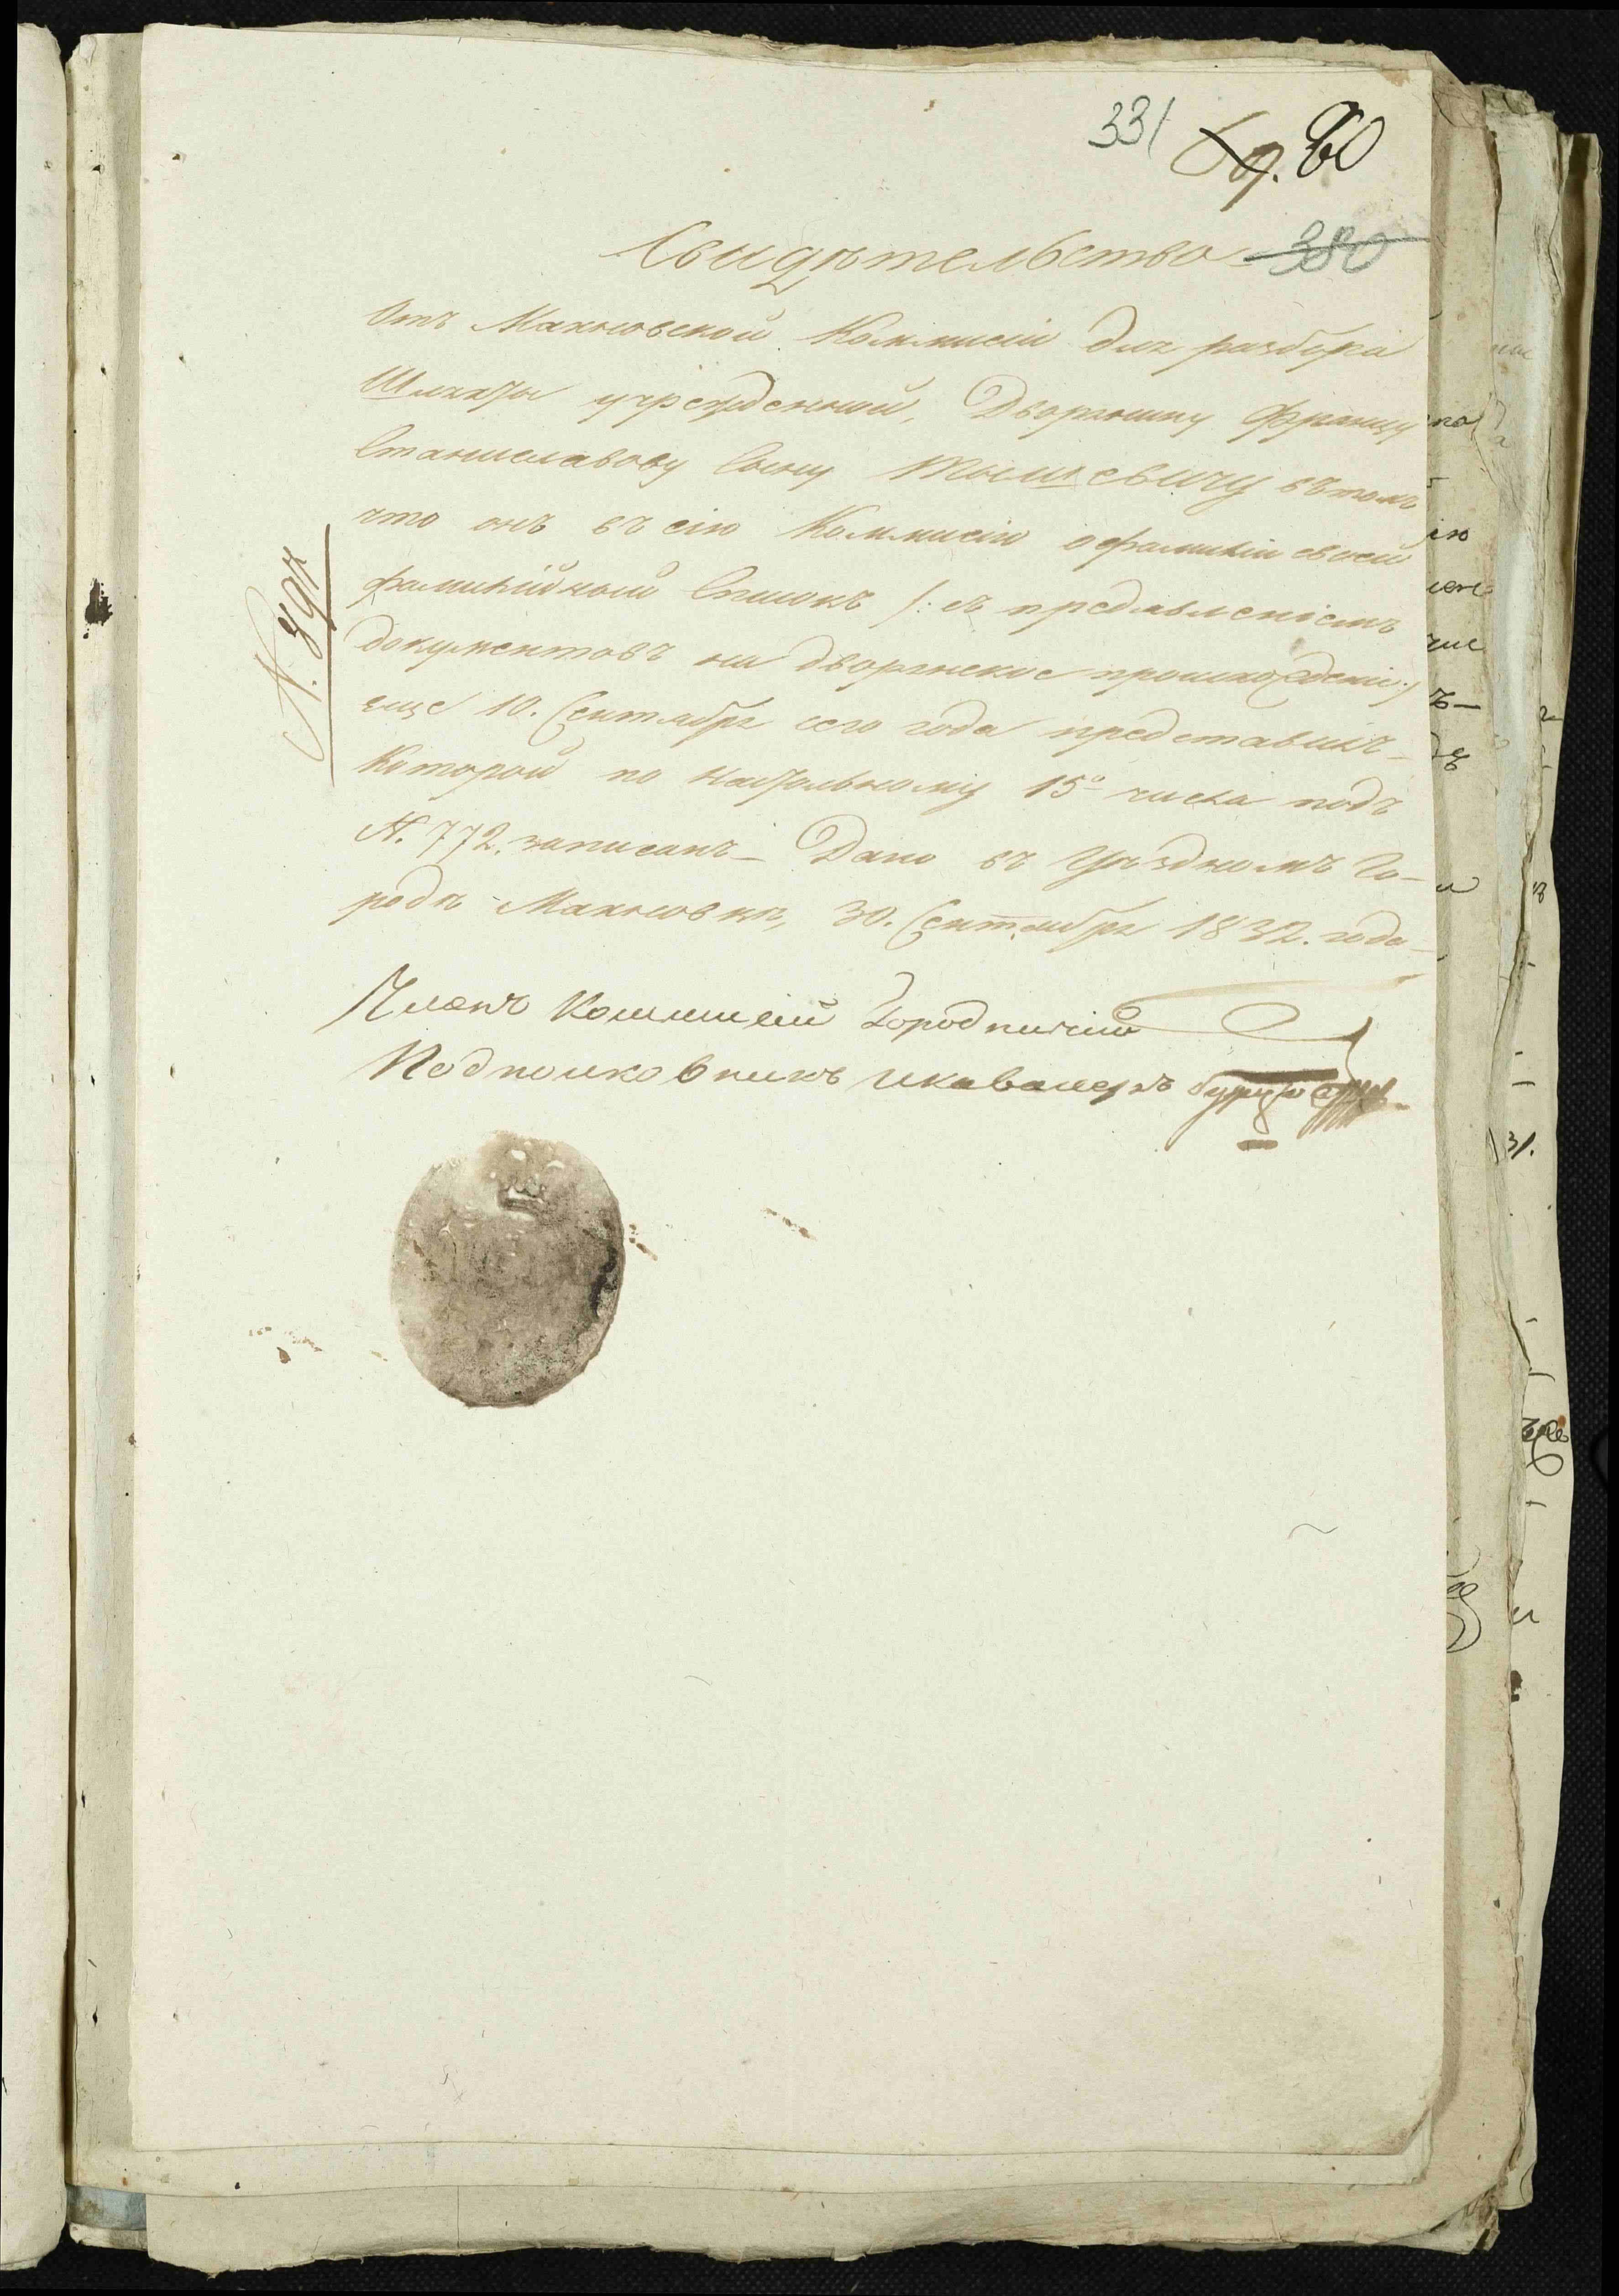 331 60
Свидѣтельство 380
Отъ Махновской Коммисіи для разбора
Шляхты учрежденной, Дворянину Францу
Станиславову Сыну Тышкевичу въ томъ
что онъ въ сію Коммисію о фамиліи своей
фамилійной Списокъ /: съ
документовъ на дворянское происхожденіе :/
еще 10. Сентября сего года представилъ –
Которой по настольному 15º числа подъ
N. 772. записанъ – Дано въ Уѣздномъ Го-
родѣ Махновкѣ, 30. Сентября 1832. года –
Членъ Коммисіи Городничій
Подполковникъ и кавалеръ
N. 894